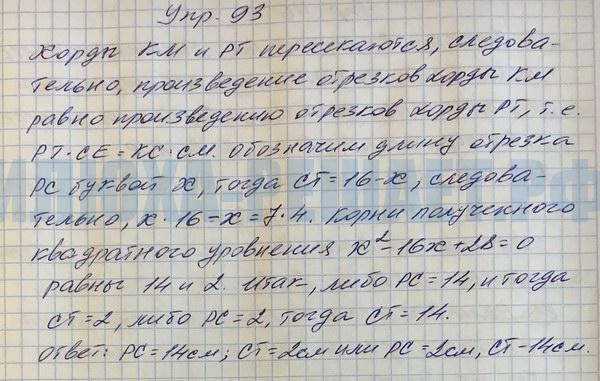 Упр. 93
Хорды КМ и РТ пересекаются, следова-
тельно, произведение отрезков хорды КМ
равно произведению отрезков хорды РТ, т.е.
РТ·СЕ = КС·СМ. Обозначим длину отрезка
РС буквой х, тогда СТ = 16-х, следова-
тельно, х·16-х = 7·4. Корни полученного
квадратного уровнения х²-16х+28=0
равны 14 и 2. Итак, либо РС=14, и тогда
СТ=2, либо РС=2, тогда СТ=14.
Ответ: РС=14см; СТ=2см или РС=2см, СТ-14см.